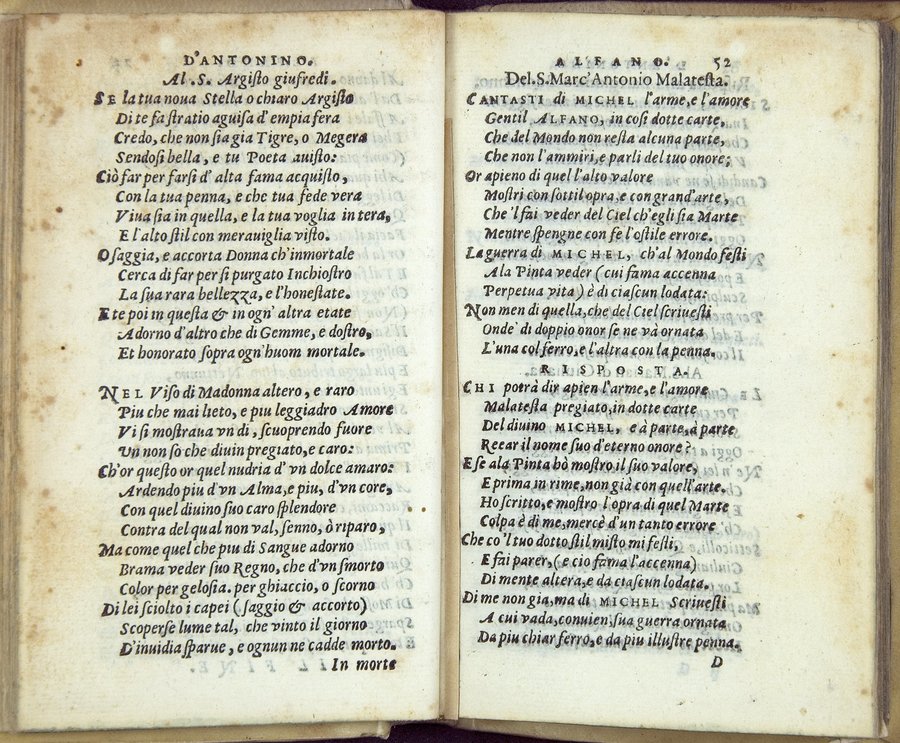 D'ANTONINO.
Al .S. Argisto giufredi.
SE la tua noua Stella o chiaro Argisto
Di te fa stratio aguisa d'empia fera
Credo, che non sia gia Tigre, o Megera
Sendosi bella, e tu Poeta auisto:
Ciò far per farsi d' alta fama acquisto,
Con la tua penna, e che tua fede vera
Viua sia in quella, e la tua voglia in tera,
E l'alto stil con merauiglia visto.
O saggia, e accorta Donna ch'inmortale
Cerca di far per si purgato Inchiostro
La sua rara bellezza, e l'honestate.
E te poi in questa & in ogn' altra etate
Adorno d'altro che di Gemme, e dostro,
Et honorato sopra ogn'huom mortale.
NEL Viso di Madonna altero, e raro
Piu che mai lieto, e piu leggiadro Amore
Vi si mostraua vn dì, scuoprendo fuore
Vn non so che diuin pregiato, e caro:
Ch'or questo or quel nudria d' vn dolce amaro:
Ardendo piu d'vn Alma, e piu, d'vn core,
Con quel diuino suo caro splendore
Contra del qual non val, senno, ò riparo,
Ma come quel che piu di Sangue adorno
Brama veder suo Regno, che d'vn smorto
Color per gelosia. per ghiaccio, o scorno
Di lei sciolto i capei (saggio & accorto)
Scoperse lume tal, che vinto il giorno
D'inuidia sparue, e ognun ne cadde morto.
In morte
ALFANO. 52
Del.S.Marc'Antonio Malatesta.
CANTASTI di MICHEL l'arme, e l'amore
Gentil ALFANO, in così dotte carte,
Che del Mondo non resta alcuna parte,
Che non l'ammiri, e parli del tuo onore;
Or apieno di quel l'alto valore
Mostri con sottil opra, e con grand'arte,
Che 'l fai veder del Ciel ch'egli sia Marte
Mentre spengne con fe l'ostile errore.
La guerra di MICHEL, ch'al Mondo festi
A la Pinta veder (cui fama accenna
Perpetua vita) è di ciascun lodata:
Non men di quella, che del Ciel scriuesti
Onde' di doppio onor se ne và ornata
L'una col ferro, e l'altra con la penna.
RISPOSTA.
CHI potrà dir apien l'arme, e l'amore
Malatesta pregiato, in dotte carte
Del diuino MICHEL, e à parte, à parte
Recar il nome suo d'eterno onore?
E se ala Pinta hò mostro il suo valore,
E prima in rime, non già con quell'arte.
Ho scritto, e mostro l'opra di quel Marte
Colpa è di me, mercè d'un tanto errore
Che co 'l tuo dotto stil misto mi festi,
E fai parer, (e cio fama l'accenna)
Di mente altera, e da ciascun lodata.
Di me non gia, ma di MICHEL Scriuesti
A cui vada, conuien, sua guerra ornata
Da piu chiar ferro, e da piu illustre penna.
D